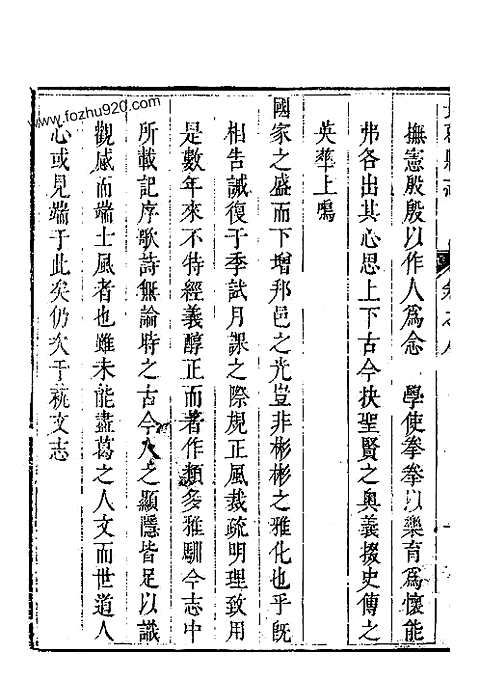 撫憲殷殷以作人爲念 學使拳拳以樂育爲懷能
弗各出其心思上下古今抉聖賢之奧義掇史傳之
英華上鳴
國家之盛而下增邦邑之光豈非彬彬之雅化也乎旣
相告誡復于季試月課之際規正風裁疏明理致用
是數年來不特經義醇正而著作類多雅馴今志中
所載記序歌詩無論時之古今人之顯隱皆足以識
觀感而端士風者也雖未能盡葛之人文而世道人
心或見端于此矣仍次于藝文志
www.fozhu920.com